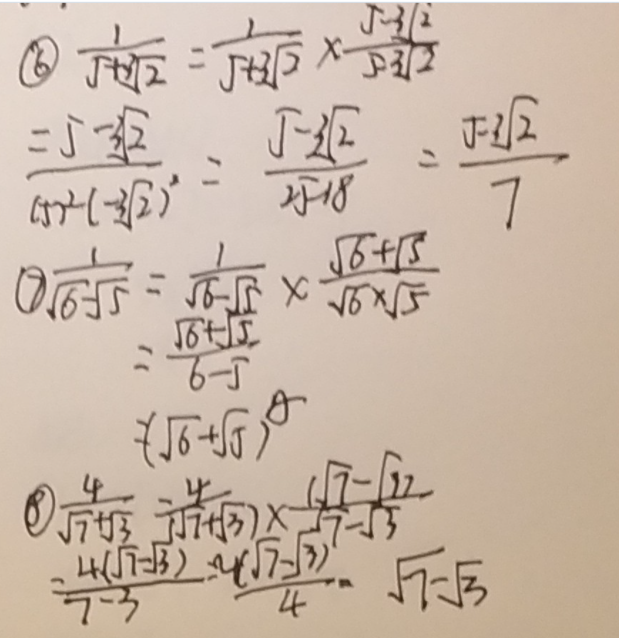 ⑥ 1/(5+3√2) = 1/(5+3√2) × (5-3√2)/(5-3√2)
= (5-3√2)/((5)²-(-3√2)²) = (5-3√2)/(25-18) = (5-3√2)/7
⑦ 1/(√6-√5) = 1/(√6-√5) × (√6+√5)/(√6×√5)
= (√6+√5)/(6-5)
=(√6+√5)
⑧ 4/(√7+√3) = 4/(√7+√3) × (√7-√3)/(√7-√3)
= 4(√7-√3)/(7-3) = 4(√7-√3)/4 = √7-√3